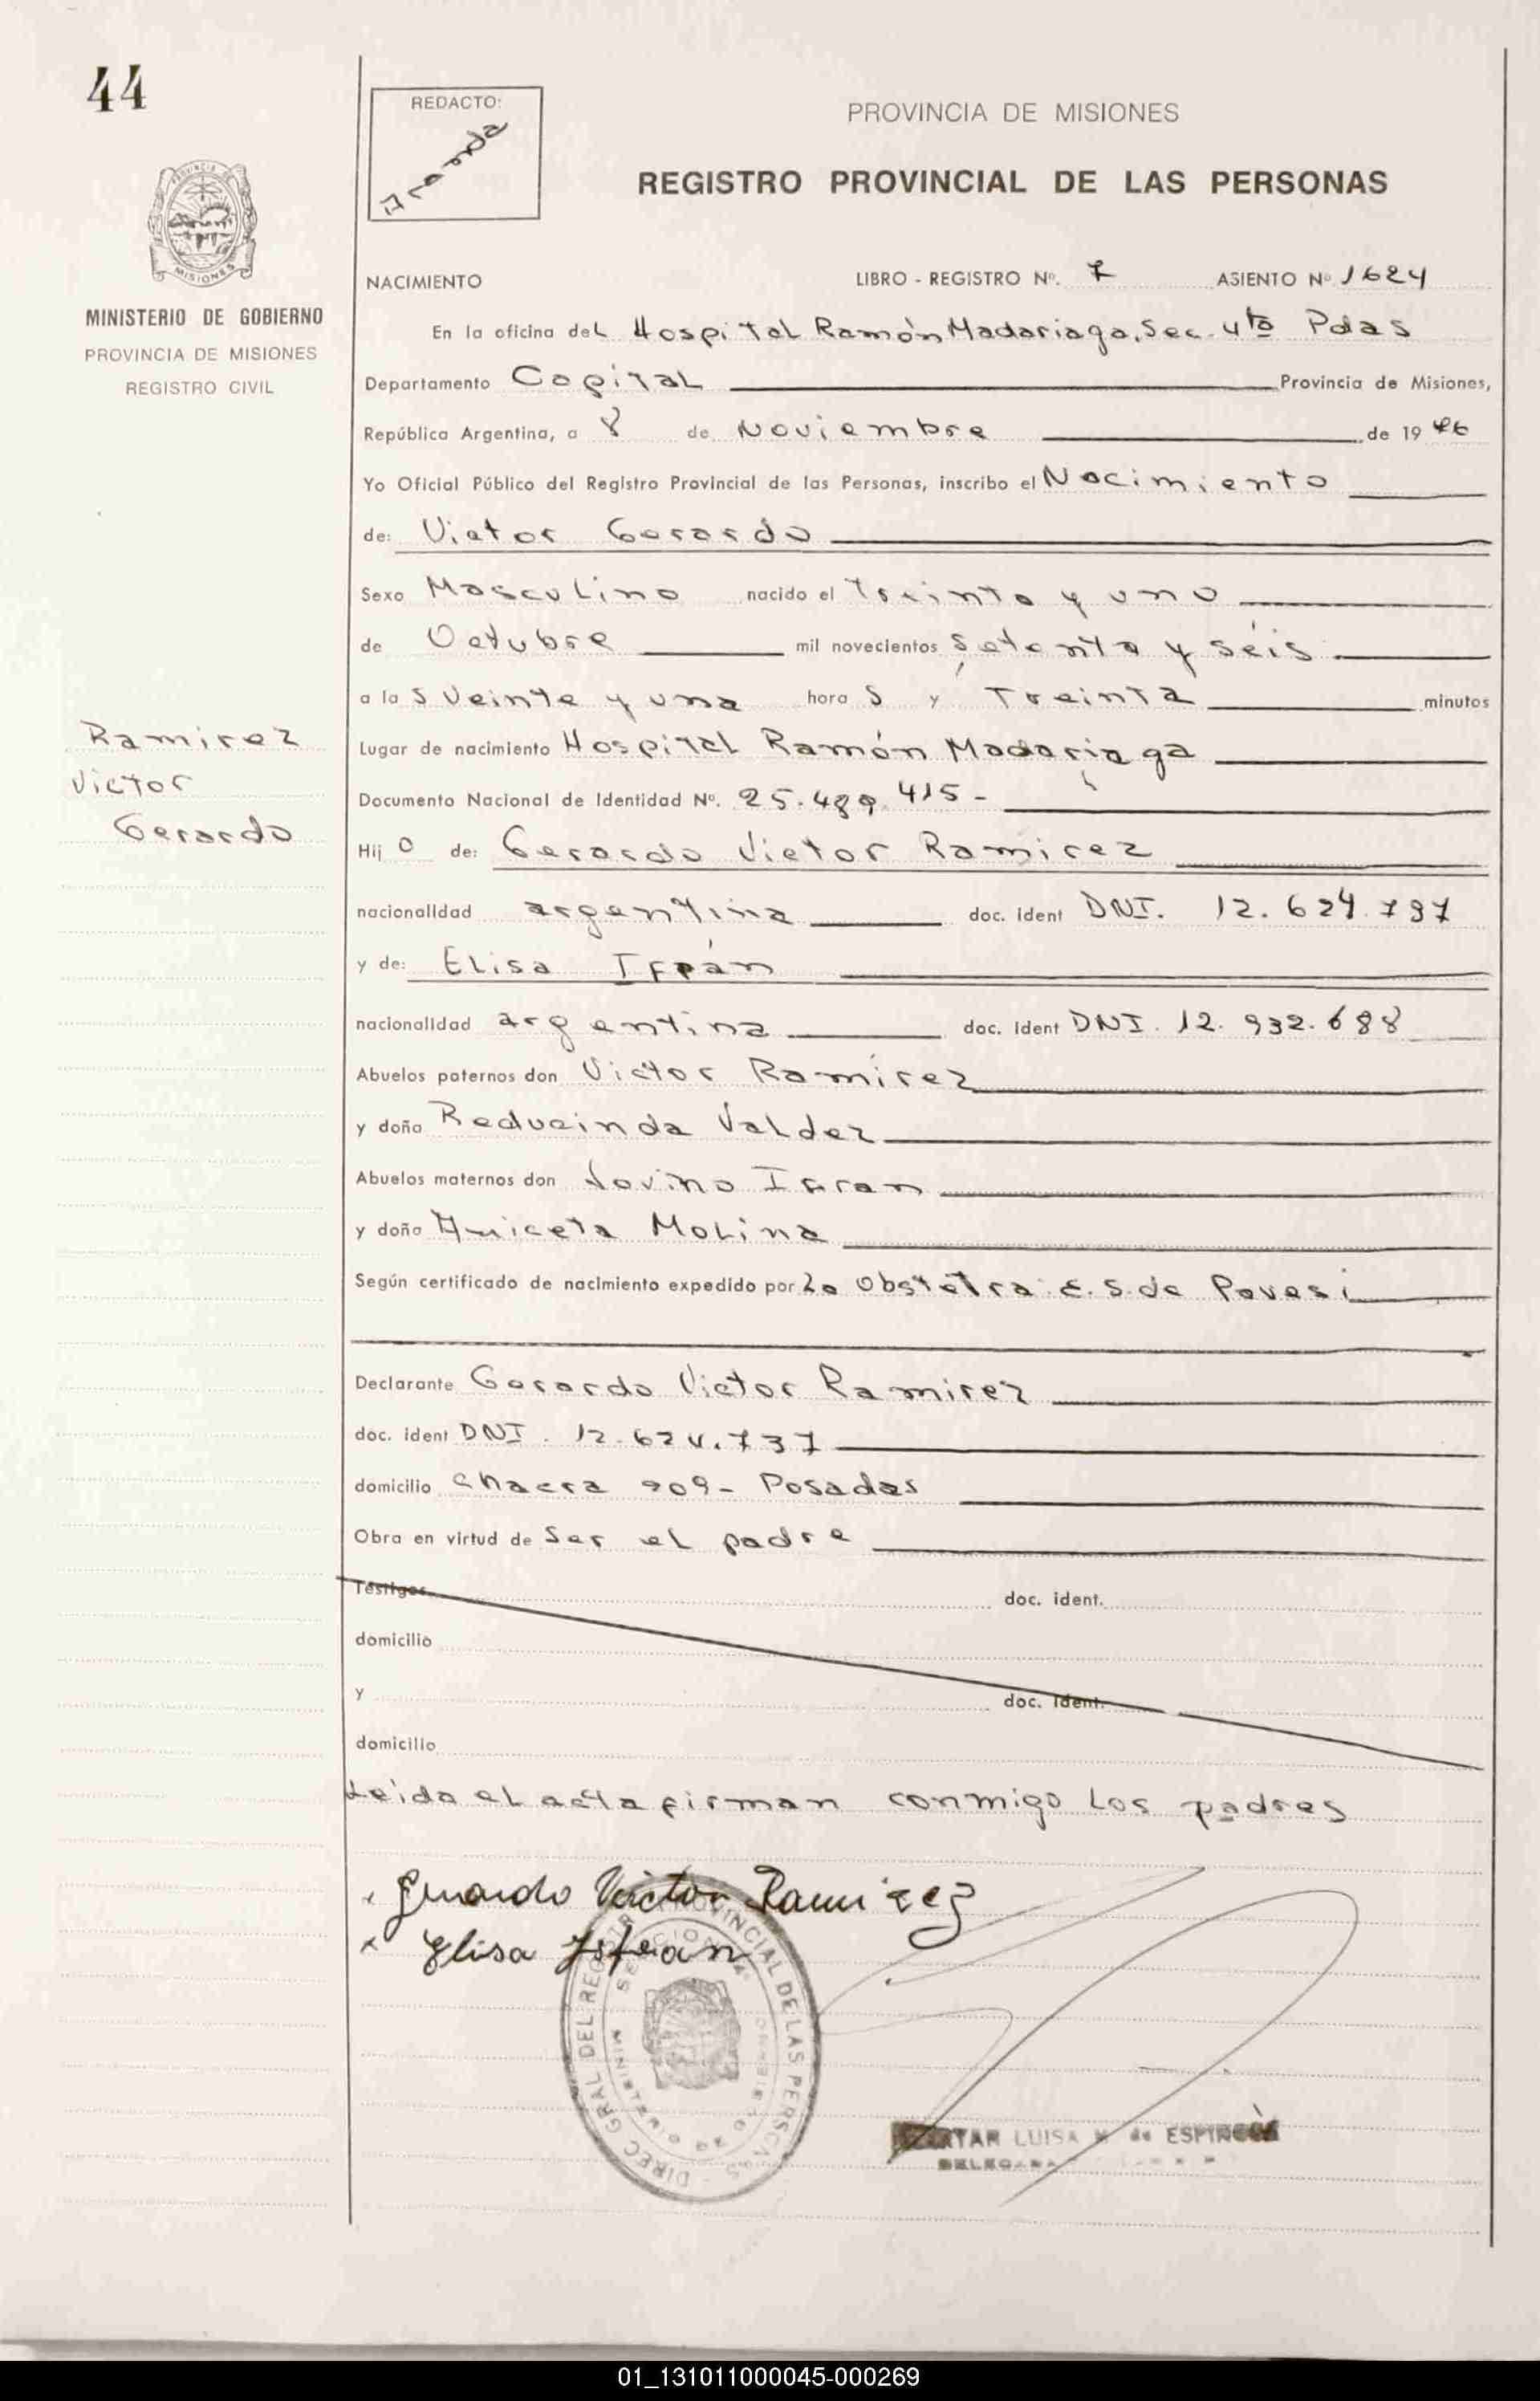 44
REDACTO:
PROVINCIA DE MISIONES
REGISTRO PROVINCIAL DE LAS PERSONAS
PROVINCIA DE
MISIONES
MINISTERIO DE GOBIERNO
PROVINCIA DE MISIONES
REGISTRO CIVIL
NACIMIENTO LIBRO - REGISTRO Nº. 7 ASIENTO Nº 1624
En la oficina del Hospital Ramón Madariaga, Sec. 4ta Pdas
Departamento Capital Provincia de Misiones,
República Argentina, a 8 de Noviembre de 19 76
Yo Oficial Público del Registro Provincial de las Personas, inscribo el Nacimiento
de: Victor Gerardo
Sexo Masculino nacido el treinta y uno
de Octubre mil novecientos setenta y seis
a las veinte y una horas y Treinta minutos
Ramirez
Victor
Gerardo
Lugar de nacimiento Hospital Ramón Madariaga
Documento Nacional de Identidad Nº. 25.489.415-
Hijo de: Gerardo Victor Ramirez
nacionalidad argentina doc. ident DNI. 12.624.737
y de: Elisa Ifrán
nacionalidad argentina doc. ident DNI. 12.932.688
Abuelos paternos don Victor Ramirez
y doña Reducinda Valdez
Abuelos maternos don Jovino Ifran
y doña Aniceta Molina
Según certificado de nacimiento expedido por La Obstetra E. S. de Pavesi
Declarante Gerardo Victor Ramirez
doc. ident DNI. 12.624.737
domicilio Chacra 909- Posadas
Obra en virtud de Ser el padre
Testigos doc. ident.
domicilio
y doc. ident.
domicilio
Leida el acta firman conmigo los padres
x Gerardo Victor Ramirez
x Elisa Isfran
DIREC GRAL DEL REGISTRO PROVINCIAL DE LAS PERSONAS
SECCION 4ª
MINISTERIO DE GOBIERNO
LUISA M de
01_131011000045-000269